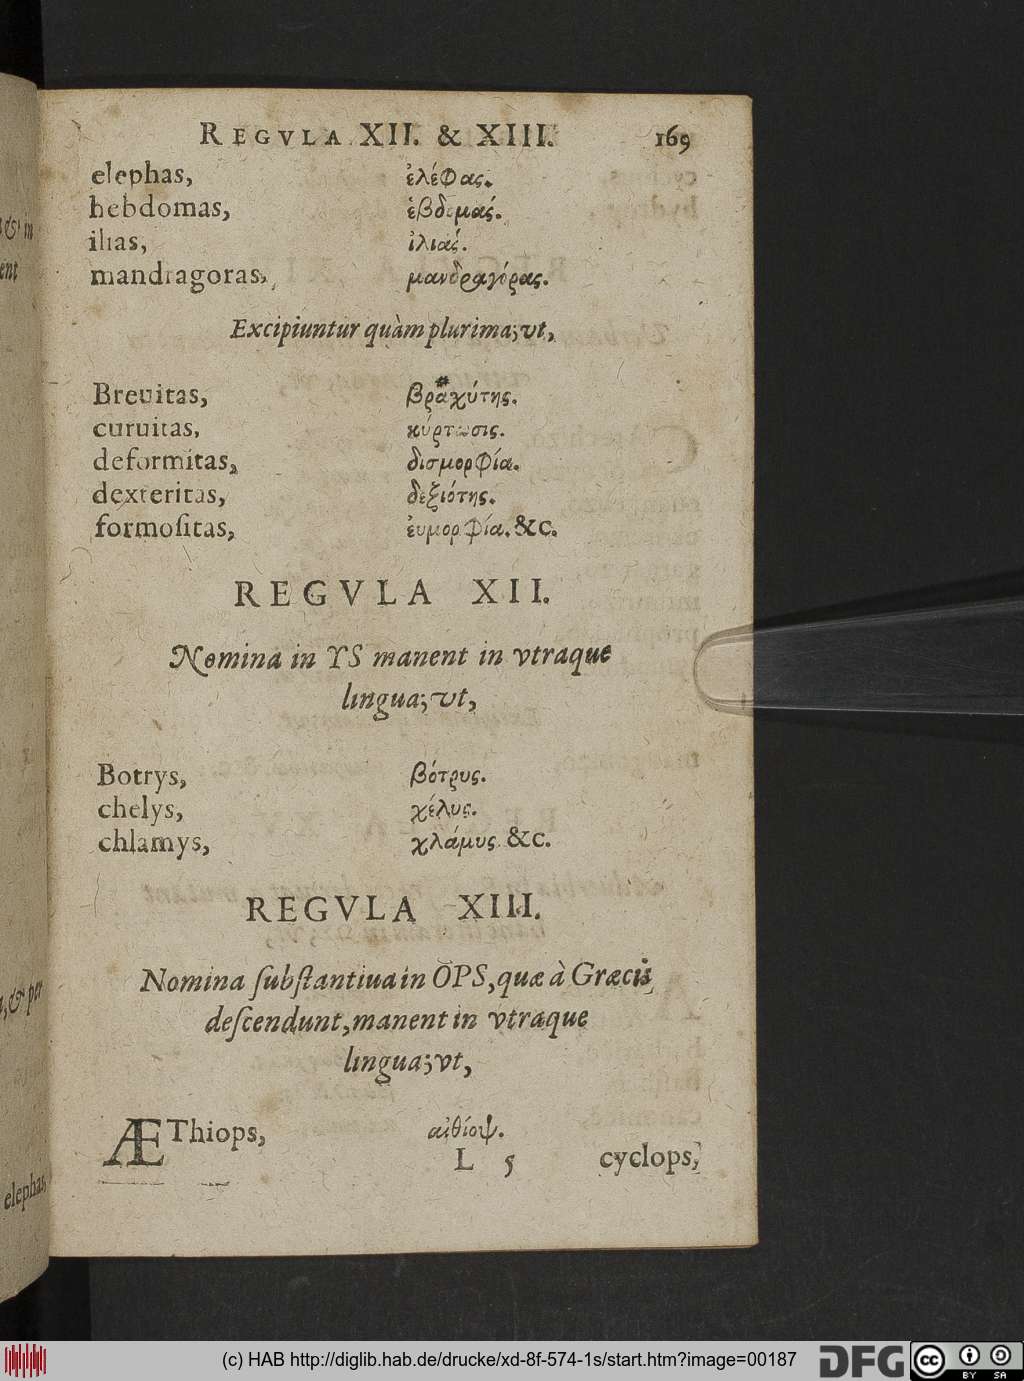 REGVLA XII. & XIII. 169
elephas, ἐλέφας.
hebdomas, ἑβδομάς.
ilias, ἰλιάς.
mandragoras, μανδραγόρας.
Excipiuntur quàm plurima; vt,
Breuitas, βραχύτης.
curuitas, κύρτωσις.
deformitas, δισμορφία.
dexteritas, δεξιότης.
formoſitas, ἐυμορφία. &c.
REGVLA XII.
Nomina in YS manent in vtraque
lingua; vt,
Botrys, βότρυς.
chelys, χέλυς.
chlamys, χλάμυς &c.
REGVLA XIII.
Nomina ſubſtantiua in OPS, quæ à Græcis
deſcendunt, manent in vtraque
lingua; vt,
ÆThiops, αἰθίοψ.
L 5 cyclops,
& in
ent
, & per
elephas,
(c) HAB http://diglib.hab.de/drucke/xd-8f-574-1s/start.htm?image=00187
DFG
cc BY SA